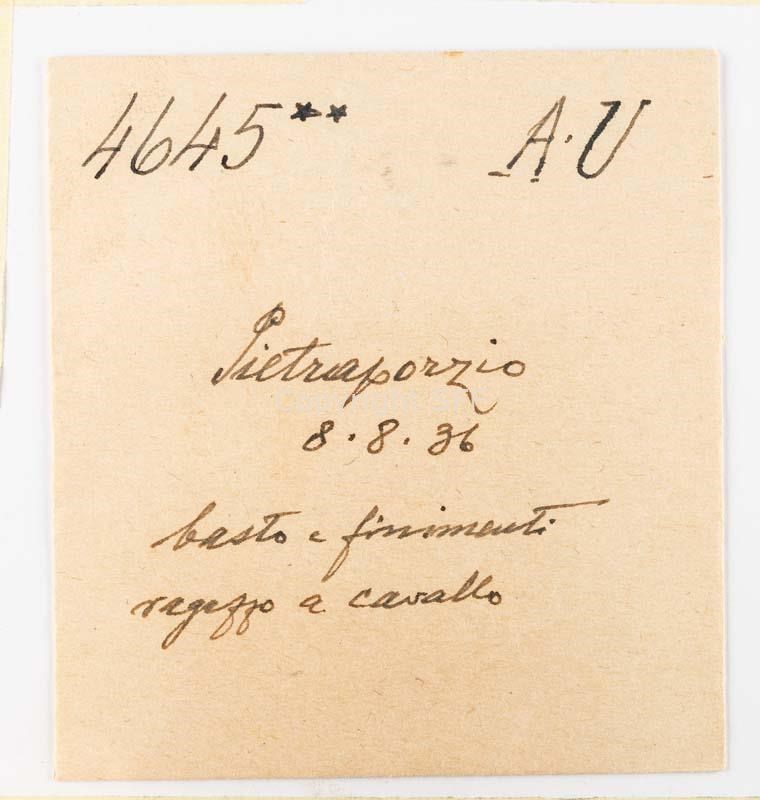 4645** A.U
Pietraporzio
8.8.36
basto e finimenti
ragazzo a cavallo